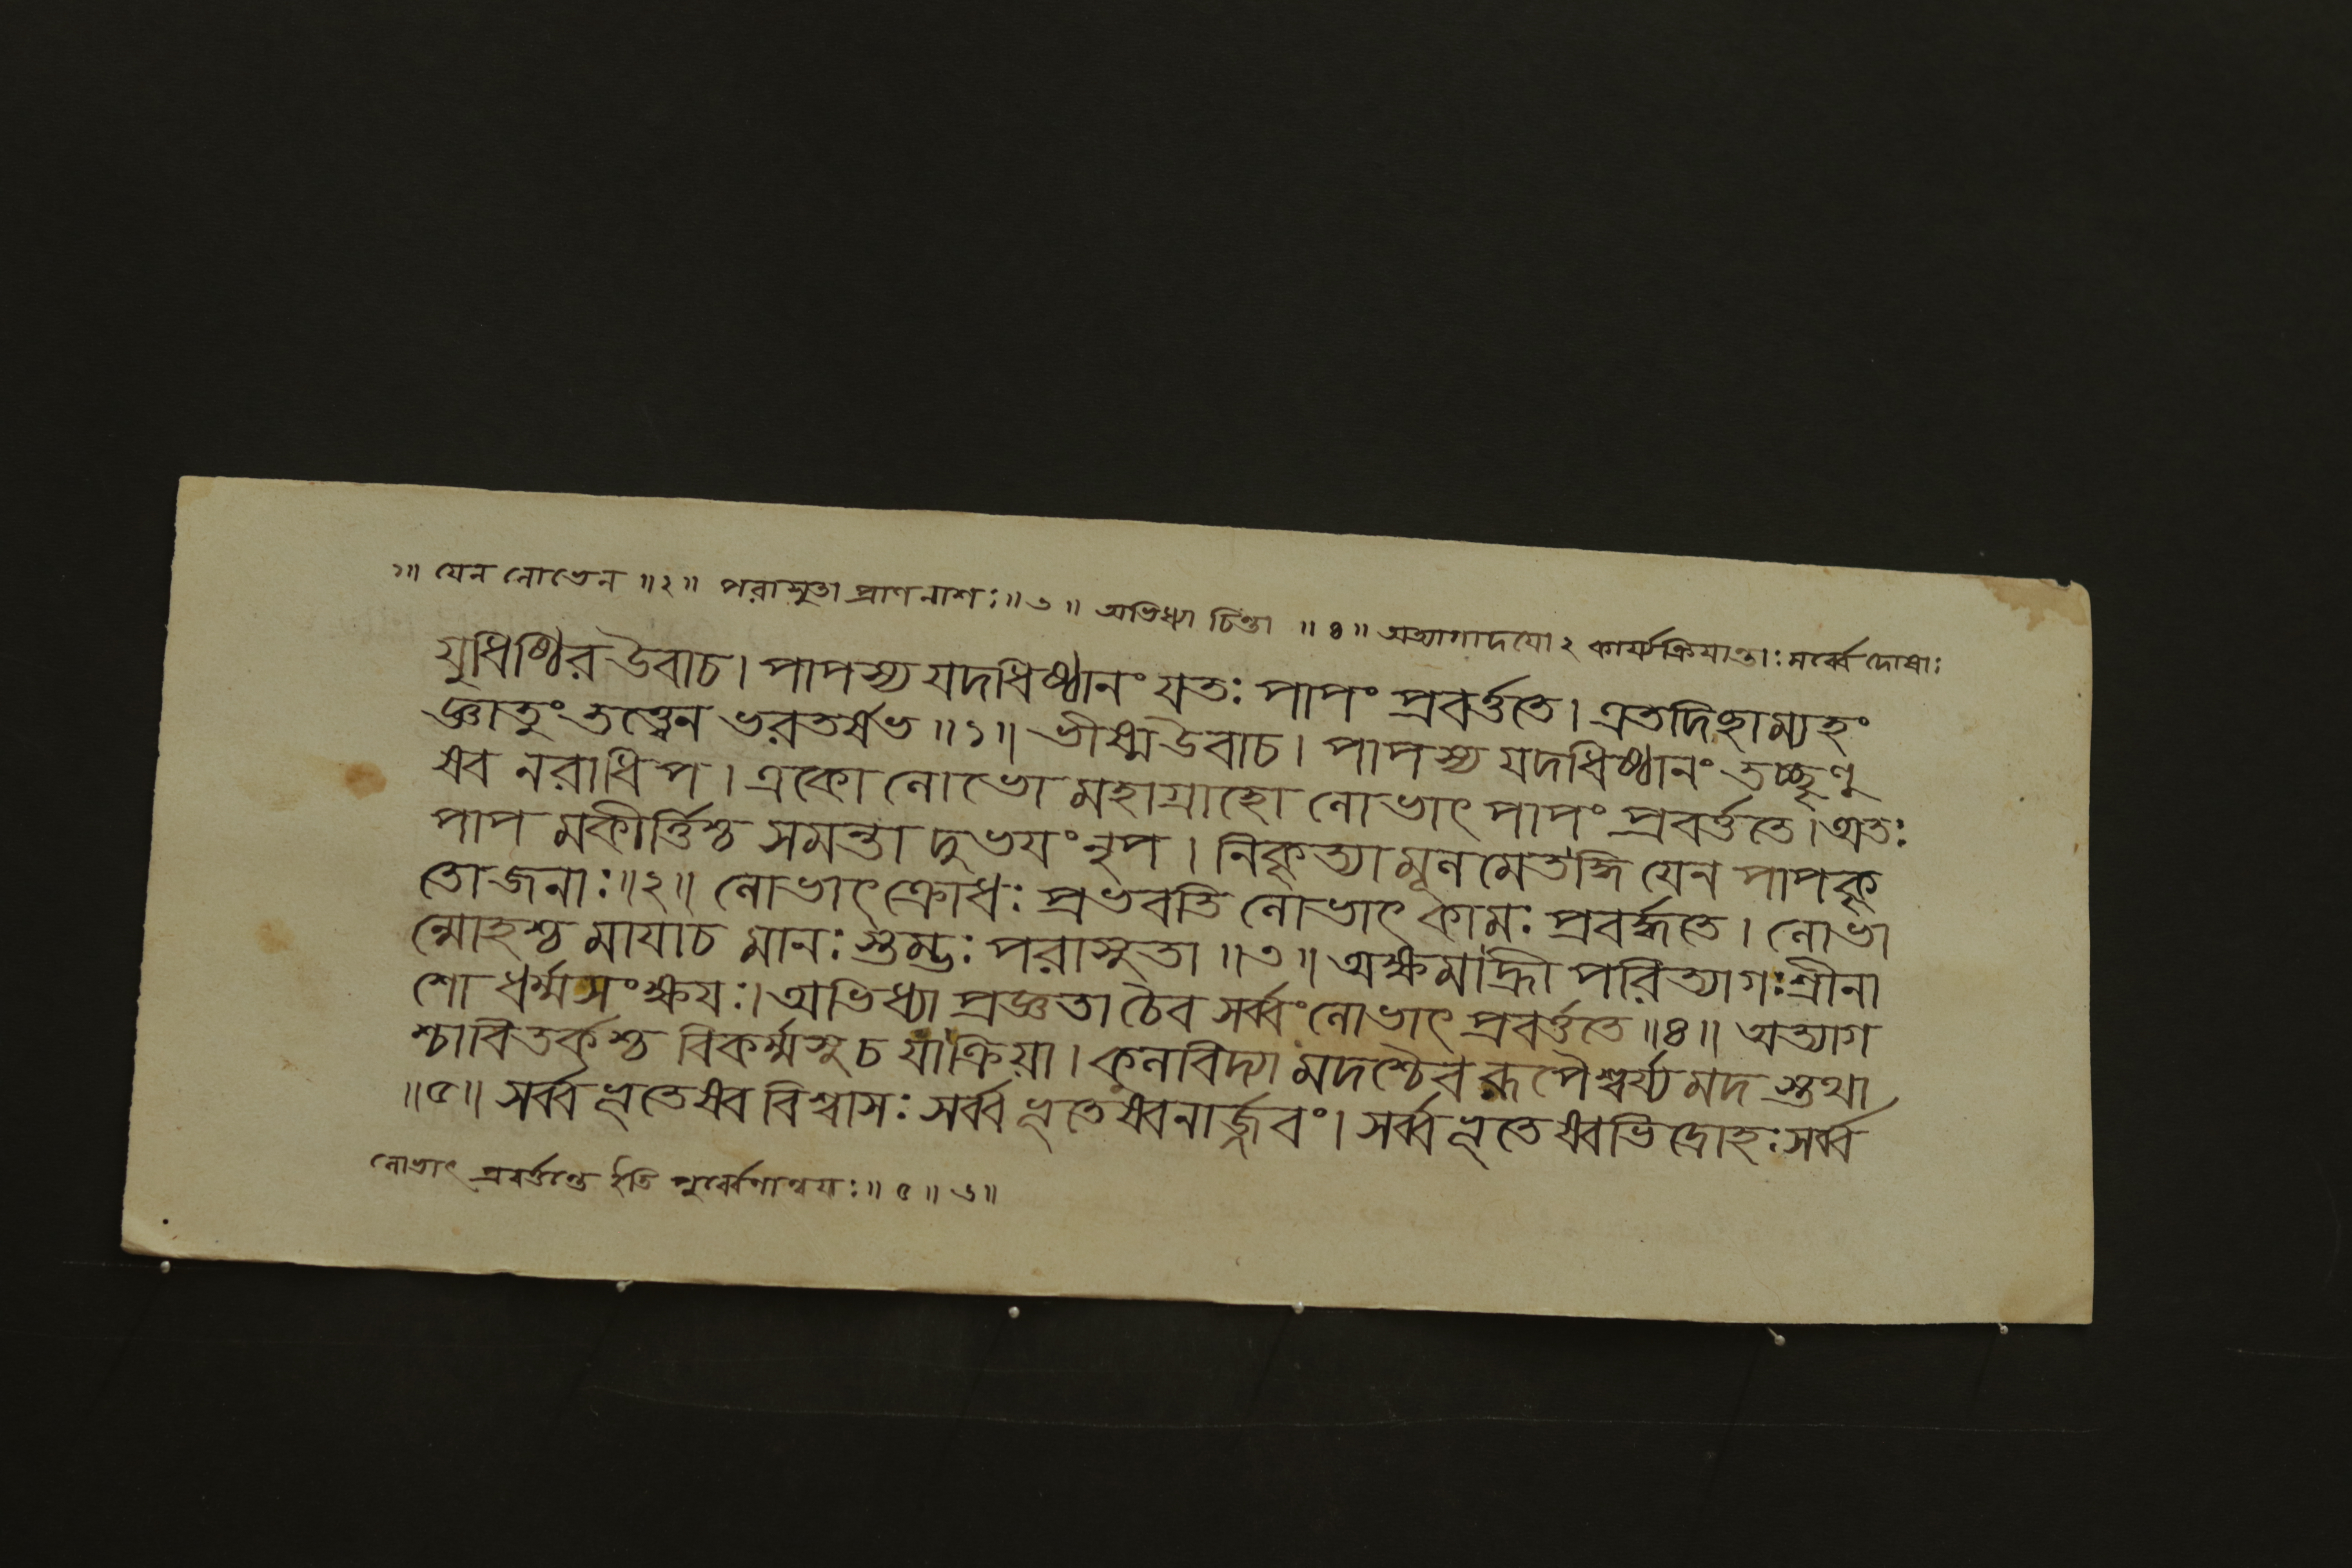 ১॥ যেন লোভেন ॥২॥ পরাসুতা প্রাণনাশঃ॥৩॥ অভিধ্যা চিন্তা ॥৪॥ অত্যাগাদযোঽ কার্য্যক্রিযান্তাঃ সর্ব্বে দোষাঃ
যুধিষ্ঠির উবাচ। পাপস্য যদধিষ্ঠানং যতঃ পাপং প্রবর্ত্ততে। এতদিছাম্যহং
জ্ঞাতুং তত্ত্বেন ভরতর্ষভ॥১॥ ভীষ্ম উবাচ। পাপস্য যদধিষ্ঠানং তচ্ছৃণু
ষ্ব নরাধিপ। একো লোভো মহাগ্রাহো লোভাৎ পাপং প্রবর্ত্ততে। অতঃ
পাপ মকীর্ত্তিশ্চ সমন্তা দুভযং নৃপ। নিকৃত্যা মূল মেতদ্ধি যেন পাপকৃ
তো জনাঃ॥২॥ লোভাৎ ক্রোধঃ প্রভবতি লোভাৎ কামঃ প্রবর্দ্ধতে। লোভা
ন্মোহশ্চ মাযাচ মানঃ স্তম্ভঃ পরাসুতা॥৩॥ অক্ষমাহ্রী পরিত্যাগঃ শ্রীনা
শো ধর্ম্মসংক্ষযঃ। অভিধ্যা প্রজ্ঞতা চৈব সর্ব্বং লোভাৎ প্রবর্ত্ততে॥৪॥ অত্যাগ
শ্চাবিতর্কশ্চ বিকর্ম্মসু চ যাক্রিয়া। কুলবিদ্যা মদশ্চৈব রূপৈশ্বর্য্য মদ স্তথা
॥৫॥ সর্ব্ব ভূতেষ্ববিশ্বাসঃ সর্ব্ব ভূতেষ্বনার্জ্জবং। সর্ব্ব ভূতেষ্বভিদ্রোহঃ সর্ব্ব
লোভাৎ প্রবর্ত্তন্তে ইতি পূর্ব্বেণান্বযঃ॥৫॥৬॥